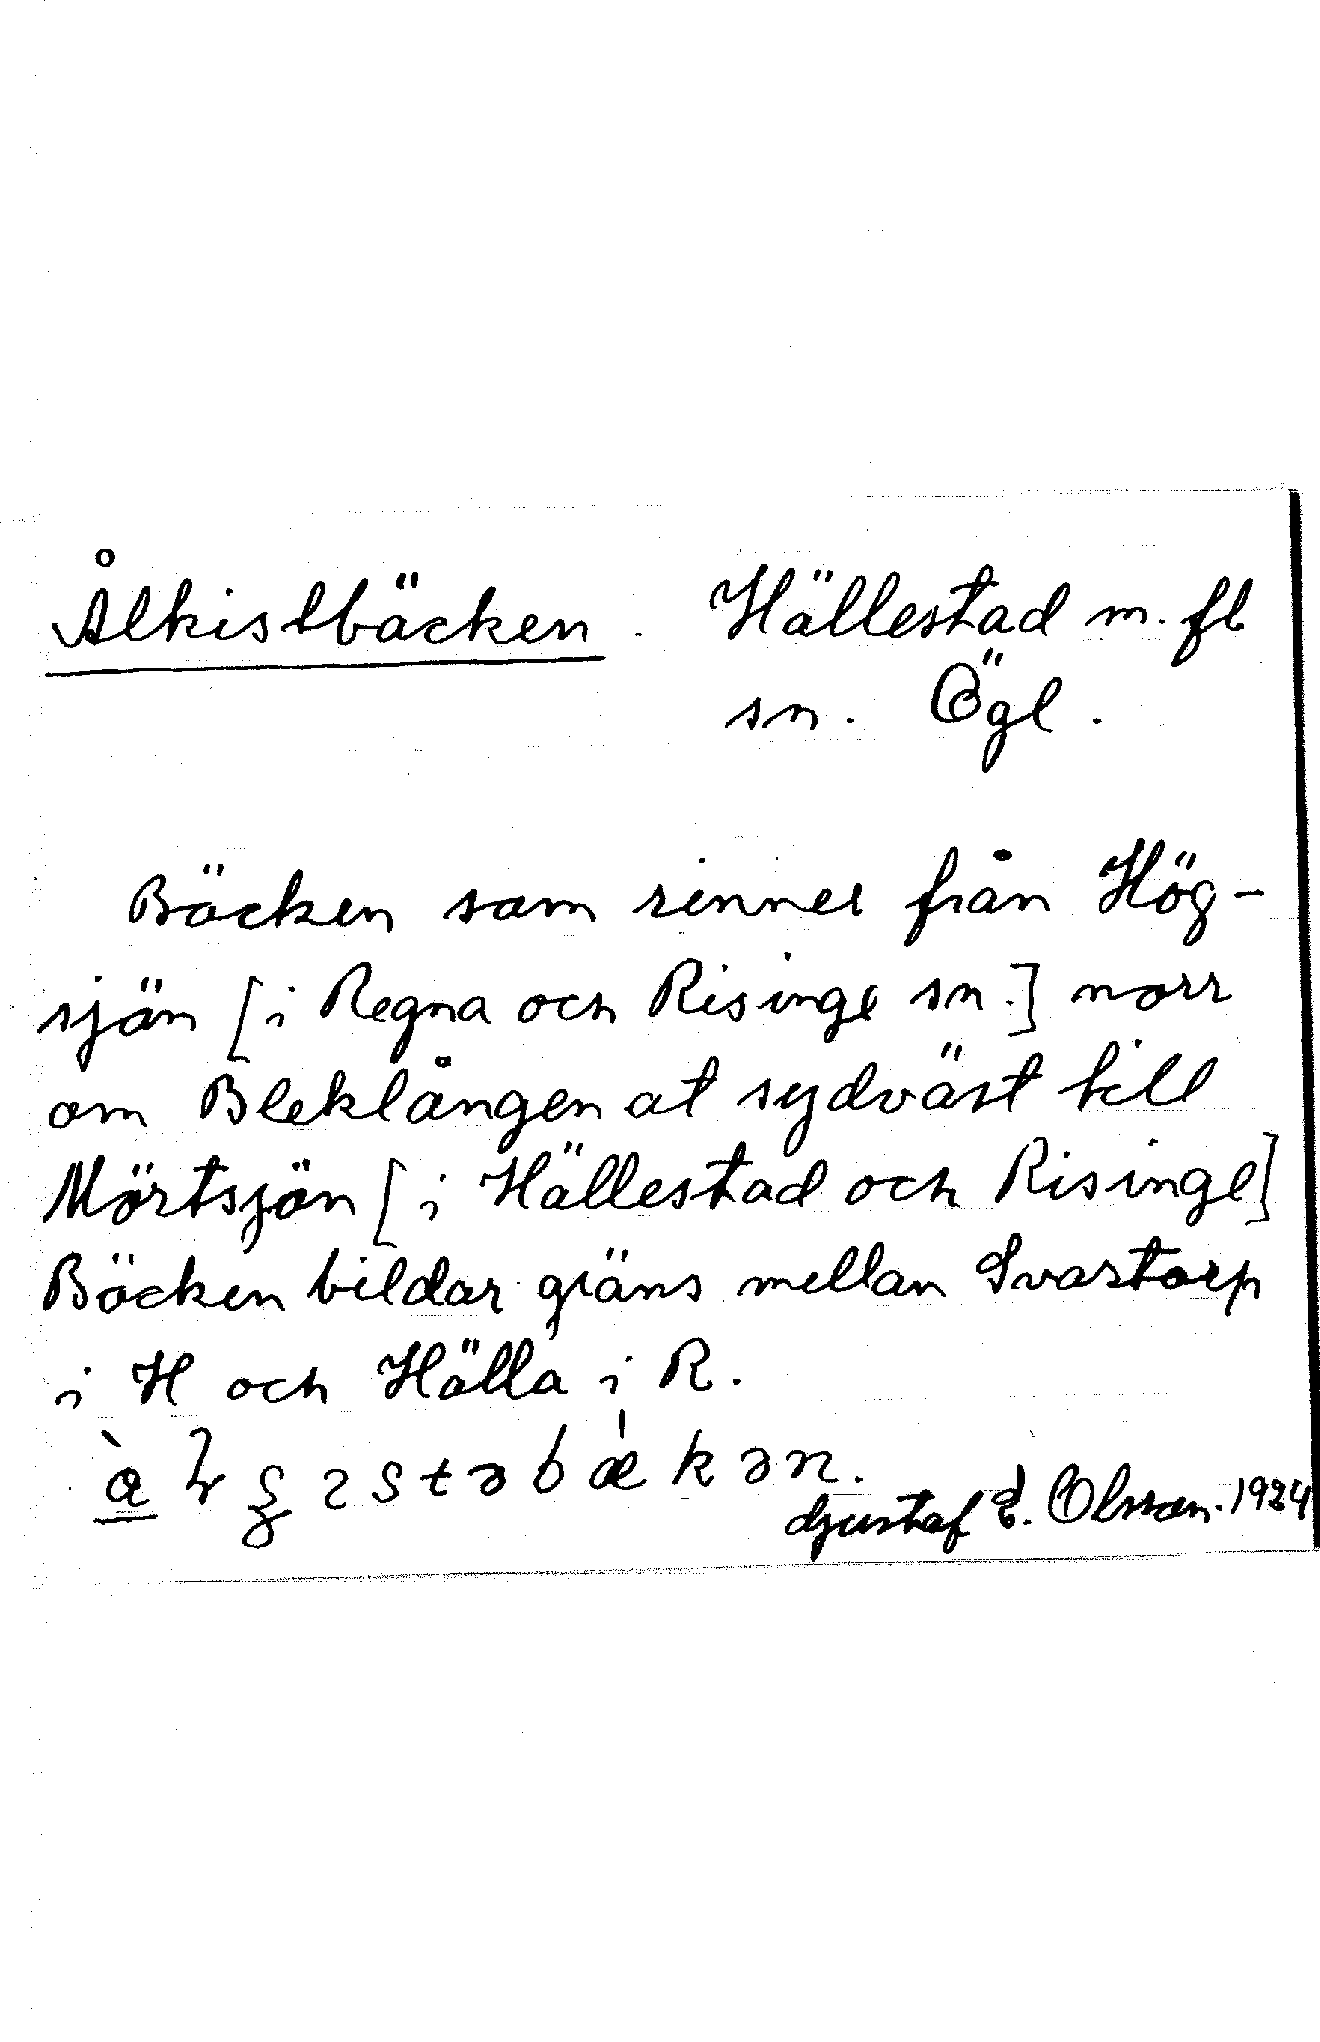 Ålkistbäcken. Hällestad m. fl
sn. Ögl.
Bäcken som rinner från Hög-
sjön [i Regna och Risinge sn.] norr
om Bleklången åt sydväst till
Mörtsjön [i Hällestad och Risinge]
Bäcken bildar gräns mellan Svartorp
i H och Hälla i R.
Gustaf E. Olsson. 1924